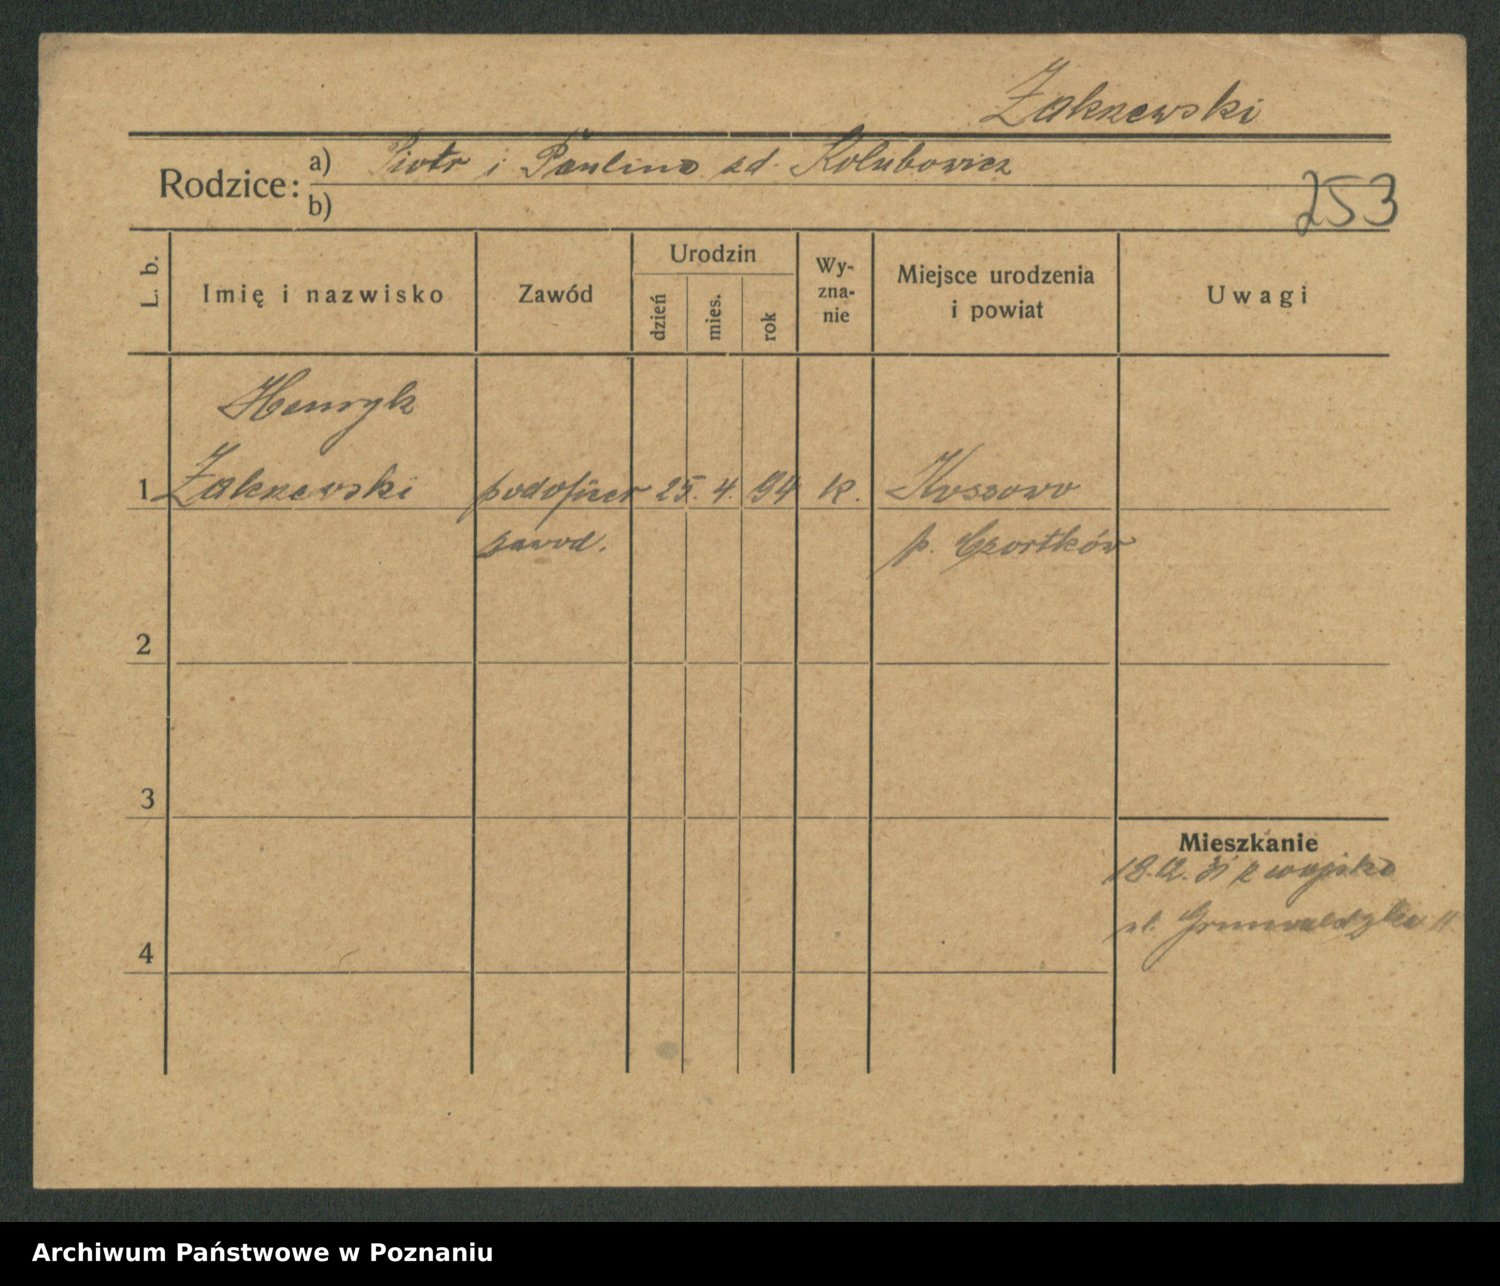 Zakrzewski
Rodzice: a) Piotr i Paulina zd. Kolubowicz
b)
253
L. b.
Imię i nazwisko
Zawód
Urodzin
dzień
mies.
rok
Wy-
zna-
nie
Miejsce urodzenia
i powiat
Uwagi
Henryk
1 Zakrzewski podoficer 25. 4. 94 k. Kossowo
zawod. p. Czortków
2
3
Mieszkanie
18.12.31 z wojska
ul. Grunwaldzka 11
4
Archiwum Państwowe w Poznaniu